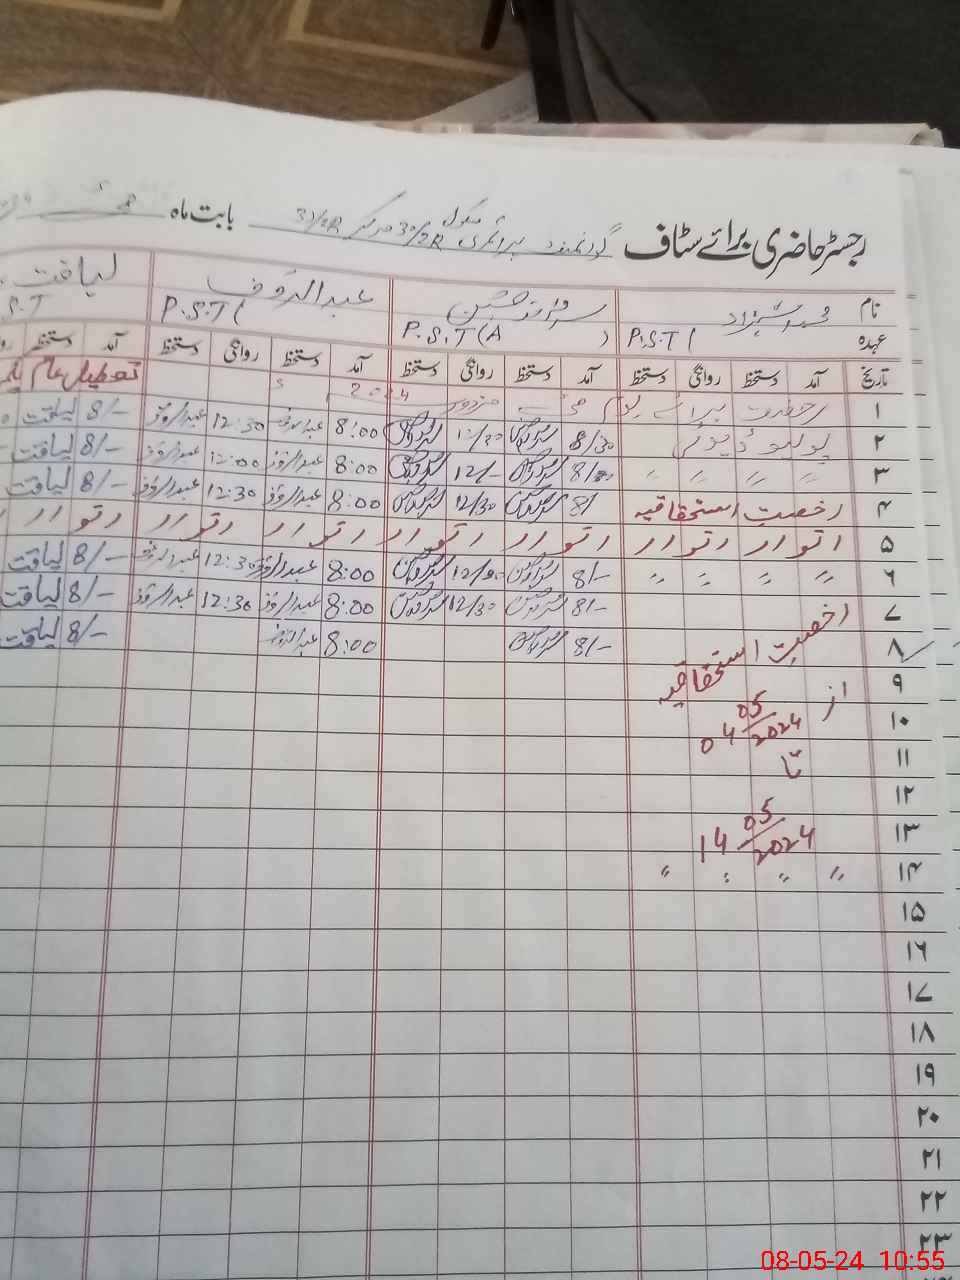 رجسٹر حاضری برائے سٹاف گورنمنٹ پرائمری سکول 30/2R مرکز 31/2R بابت ماہ
نام محمد شہزاد عبدالرؤف لیاقت
عہدہ P.S.T ( P.S.T (A ) P.S.T ( S.T
تاریخ آمد دستخط روانگی دستخط آمد دستخط روانگی دستخط آمد دستخط روانگی دستخط آمد دستخط
۱ رخصت برائے یوم مزدور 2024 تعطیل عام
۲ پولیو ڈیوٹی 8/30 12/30 8:00 عبدالرؤف 12:30 عبدالرؤف 8/- لیاقت
۳ 〃 〃 〃 〃 12/- 8:00 عبدالرؤف 12:00 عبدالرؤف 8/- لیاقت
۴ رخصت استحقاقیہ 8/ 12/30 8:00 عبدالرؤف 12:30 عبدالرؤف 8/- لیاقت
۵ اتوار اتوار اتوار اتوار اتوار اتوار
۶ 〃 〃 〃 〃 8/- 8:00 عبدالرؤف 12:30 عبدالرؤف 8/- لیاقت
۷ 8/- 12/30 8:00 عبدالرؤف 12:30 عبدالرؤف 8/- لیاقت
۸ رخصت استحقاقیہ 8/- 8:00 عبدالرؤف 8/- لیاقت
۹ از
۱۰ 04 05/2024
۱۱ تا
۱۲
۱۳ 14 05/2024
۱۴ 〃 〃 〃 〃
۱۵
۱۶
۱۷
۱۸
۱۹
۲۰
۲۱
۲۲
۲۳
08-05-24 10:55